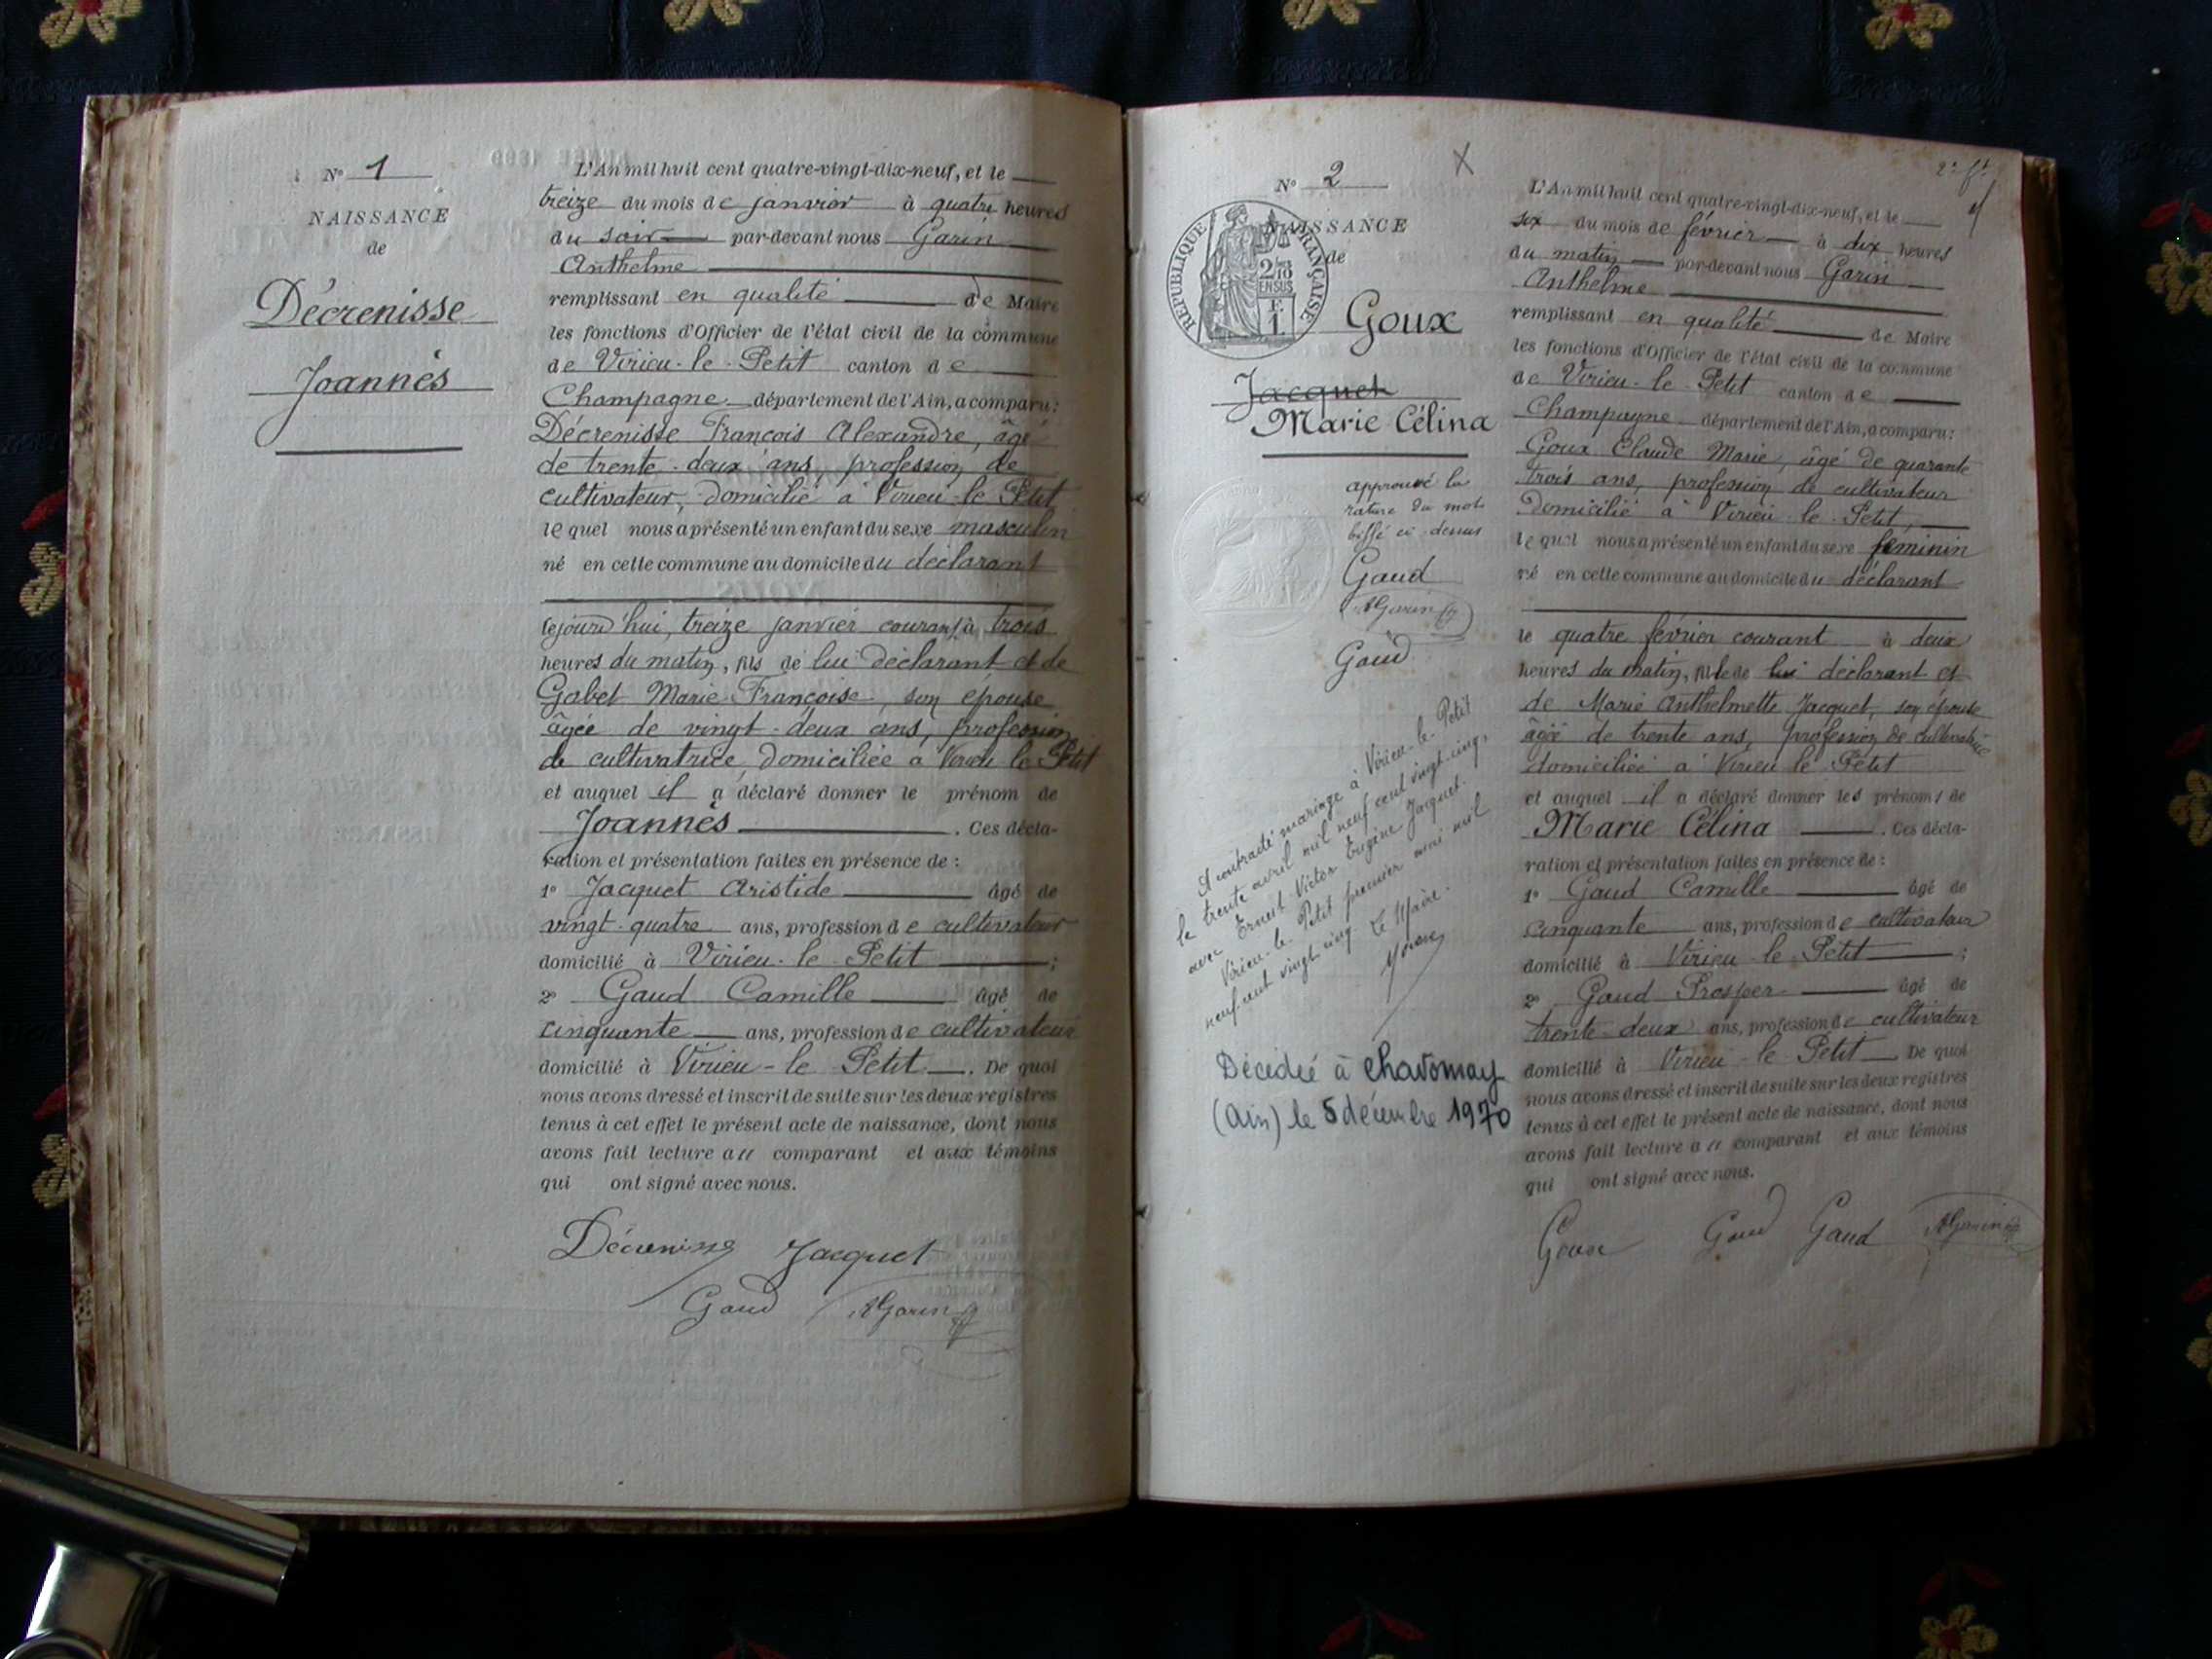 N° 1
NAISSANCE
de
Décrenisse
Joannès
L'An mil huit cent quatre-vingt-dix-neuf, et le
treize du mois de janvier à quatre heures
du soir par-devant nous Garin
Anthelme
remplissant en qualité de Maire
les fonctions d'Officier de l'état civil de la commune
de Virieu-le-Petit canton de
Champagne département de l'Ain, a comparu:
Décrenisse François Alexandre, âgé
de trente-deux ans, profession de
cultivateur, domicilié à Virieu-le-Petit
lequel nous a présenté un enfant du sexe masculin
né en cette commune au domicile du déclarant
cejourd'hui, treize janvier courant à trois
heures du matin, fils de lui déclarant et de
Gabet Marie-Françoise, son épouse
âgée de vingt-deux ans, profession
de cultivatrice, domiciliée à Virieu le Petit
et auquel il a déclaré donner le prénom de
Joannès . Ces décla-
ration et présentation faites en présence de :
1° Jacquet Aristide âgé de
vingt-quatre ans, profession de cultivateur
domicilié à Virieu-le-Petit ;
2° Gaud Camille âgé de
cinquante ans, profession de cultivateur
domicilié à Virieu-le-Petit . De quoi
nous avons dressé et inscrit de suite sur les deux registres
tenus à cet effet le présent acte de naissance, dont nous
avons fait lecture au comparant et aux témoins
qui ont signé avec nous.
Décrenisse Jacquet
Gaud AGarin
N° 2 X
NAISSANCE
de
RÉPUBLIQUE FRANÇAISE
2/10
EN SUS
F.
1
Goux
Jacquet
Marie Célina
approuvé la
rature du mot
biffé ci-dessus
Gaud
AGarin
Gaud
A contracté mariage à Virieu-le-Petit
le trente avril mil neuf cent vingt-cinq,
avec Ernest Victor Eugène Jacquet.
Virieu-le-Petit premier mai mil
neuf cent vingt cinq Le Maire.
Décédée à Chavornay
(Ain) le 5 décembre 1970
L'An mil huit cent quatre-vingt-dix-neuf, et le
six du mois de février à dix heures
du matin par-devant nous Garin
Anthelme
remplissant en qualité de Maire
les fonctions d'Officier de l'état civil de la commune
de Virieu-le-Petit canton de
Champagne département de l'Ain, a comparu:
Goux Claude Marie, âgé de quarante
trois ans, profession de cultivateur
domicilié à Virieu-le-Petit,
lequel nous a présenté un enfant du sexe féminin
né en cette commune au domicile du déclarant
le quatre février courant à deux
heures du matin, fille de lui déclarant et
de Marie Anthelmette Jacquet, son épouse
âgée de trente ans, profession de cultivatrice
domiciliée à Virieu le Petit
et auquel il a déclaré donner les prénoms de
Marie Célina . Ces décla-
ration et présentation faites en présence de :
1° Gaud Camille âgé de
cinquante ans, profession de cultivateur
domicilié à Virieu-le-Petit ;
2° Gaud Prosper âgé de
trente-deux ans, profession de cultivateur
domicilié à Virieu-le-Petit De quoi
nous avons dressé et inscrit de suite sur les deux registres
tenus à cet effet le présent acte de naissance, dont nous
avons fait lecture au comparant et aux témoins
qui ont signé avec nous.
Goux Gaud Gaud AGarin